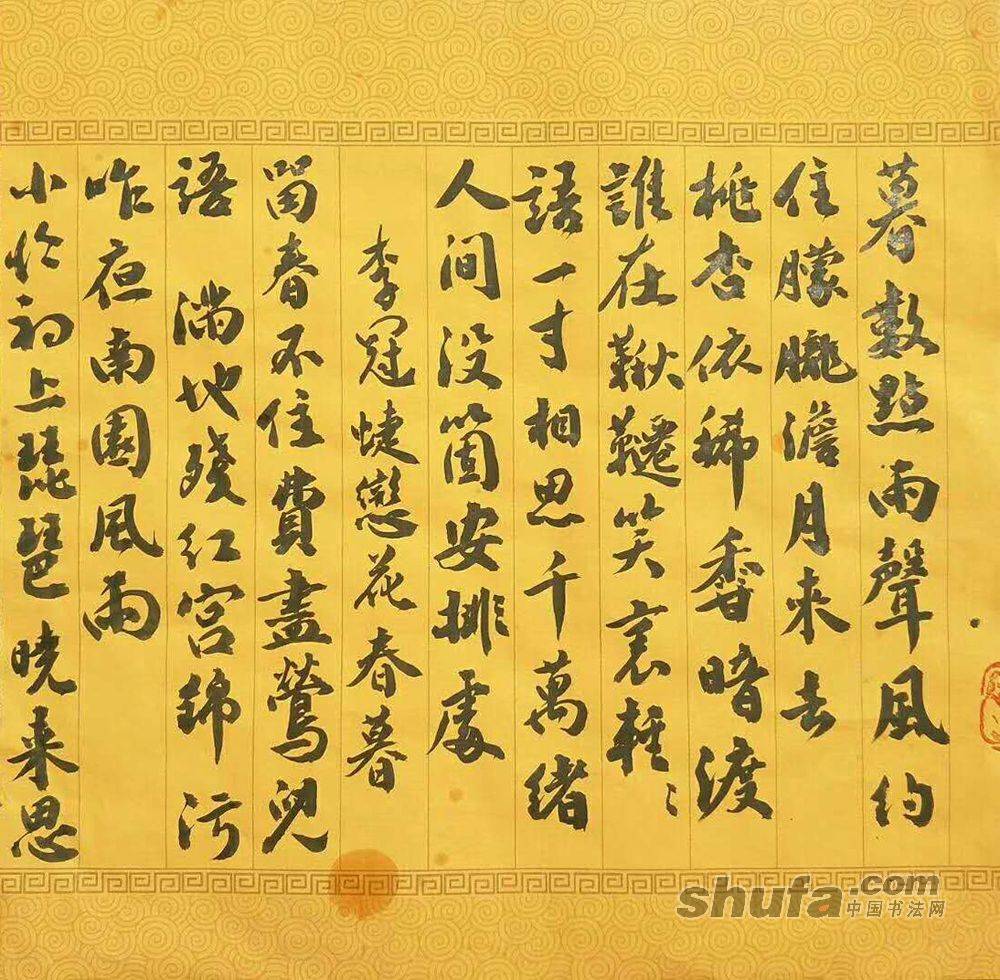 暮數點雨聲風約
住朦朧澹月來去
桃杏依稀香暗渡
誰在鞦韆笑裏輕〻
語一寸相思千萬緒
人间没箇安排處
李冠蝶戀花春暮
留春不住費盡鶯兒
語 滿地殘红宫錦污
昨夜南園風雨
小怜初上琵琶 曉来思
shufa.com
中国书法网